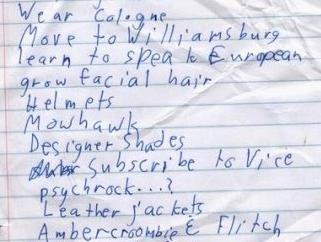 Wear Cologne
Move to Williamsburg
learn to speak European
grow facial hair
Helmets
Mowhawk
Designer Shades
Subscribe to Vice
psychrock...?
Leather jackets
Ambercroombie & Flitch